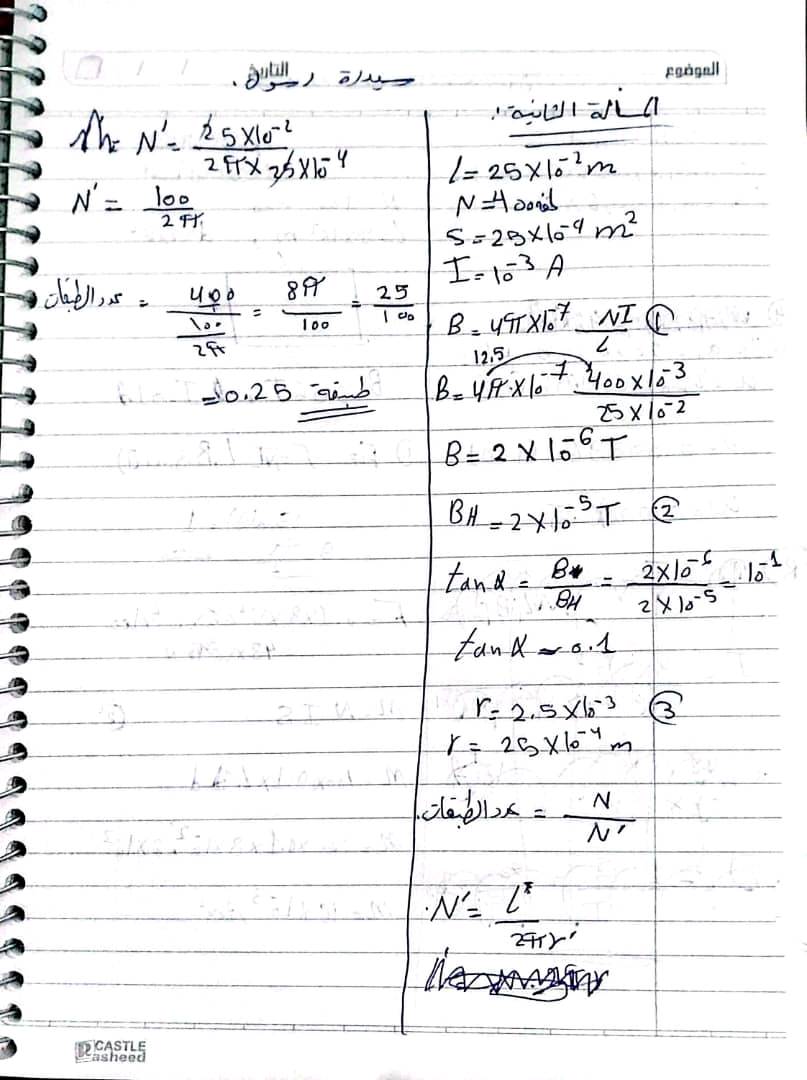 الموضوع
التاريخ / /
سيدرة رسول.
المسألة الثانية:
l = 25 × 10⁻² m
N = 400 لفة
S = 25 × 10⁻⁴ m²
I = 10⁻³ A
B = 4π × 10⁻⁷ NI / L ①
12,5
B = 4π × 10⁻⁷ 400 × 10⁻³ / 25 × 10⁻²
B = 2 × 10⁻⁶ T
BH = 2 × 10⁻⁵ T ②
tan α = B / BH = 2 × 10⁻⁶ / 2 × 10⁻⁵ = 10⁻¹
tan α = 0.1
r = 2,5 × 10⁻³ ③
r = 25 × 10⁻⁴ m
عدد الطبقات = N / N'
N' = L / 2πr
N' = 25 × 10⁻² / 2π × 25 × 10⁻⁴
N' = 100 / 2π
عدد الطبقات = 400 / 100 / 2π = 8π / 100 = 25 / 100
= 0.25 طبقة
CASTLE
Rasheed